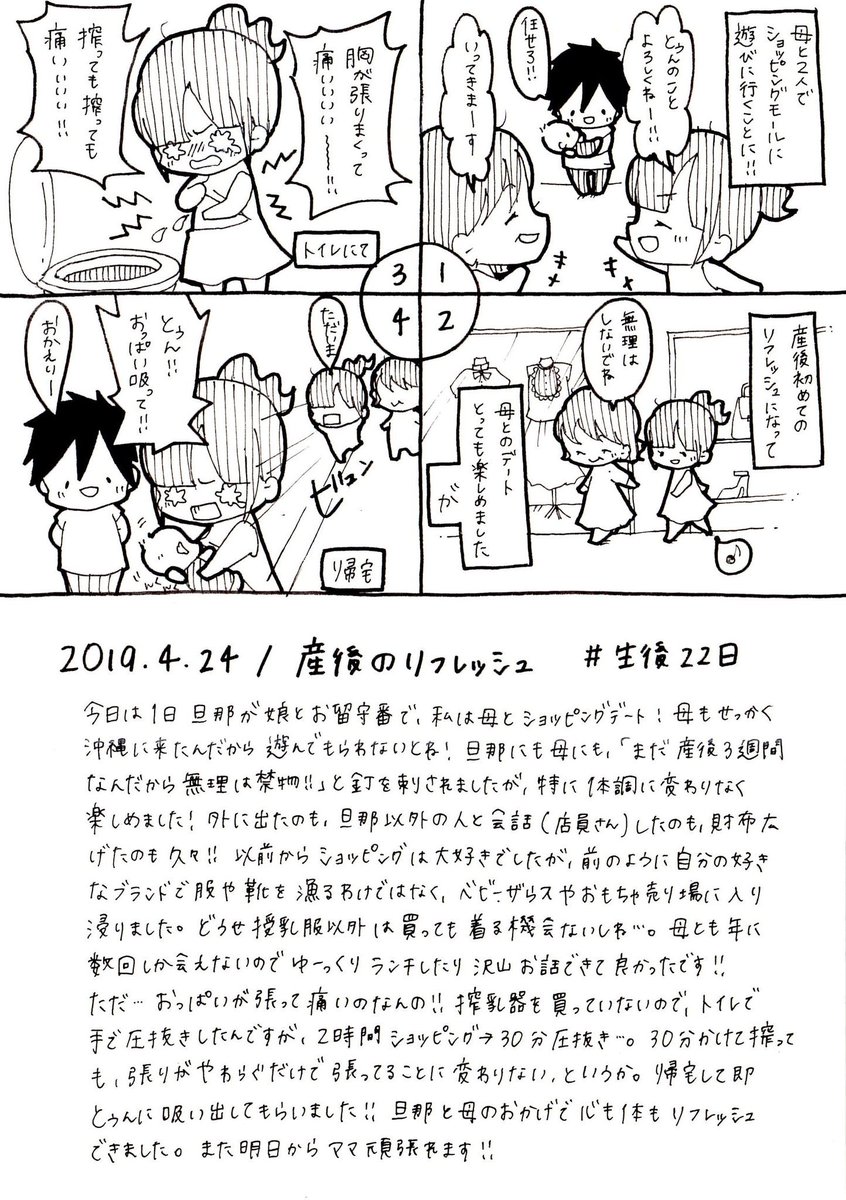 母と2人で
ショッピングモールに
遊びに行くことに!!
とぅんのこと
よろしくねー!!
任せろ!!
いってきまーす
1
産後初めての
リフレッシュになって
無理は
しないでね
母とのデート
とっても楽しめました
が
2
胸が張りまくって
痛いいいい〜〜!!
搾っても搾っても
痛いいいい!!
トイレにて
3
ただいま
ビュン
帰宅
とぅん!!
おっぱい吸って!!
おかえりー
4
2019.4.24 / 産後のリフレッシュ #生後22日
今日は1日旦那が娘とお留守番で、私は母とショッピングデート!母もせっかく
沖縄に来たんだから遊んでもらわないとね!旦那にも母にも、「まだ産後3週間
なんだから無理は禁物!!」と釘を刺されましたが、特に体調に変わりなく
楽しめました!外に出たのも、旦那以外の人と会話(店員さん)したのも、財布広
げたのも久々!!以前からショッピングは大好きでしたが、前のように自分の好き
なブランドで服や靴を漁るわけではなく、ベビーザらスやおもちゃ売り場に入り
浸りました。どうせ授乳服以外は買っても着る機会ないしね…。母とも年に
数回しか会えないのでゆーっくりランチしたり沢山お話できて良かったです!!
ただ…おっぱいが張って痛いのなんの!!搾乳器を買っていないので、トイレで
手で圧抜きしたんですが、2時間ショッピング→30分圧抜き…。30分かけて搾って
も、張りがやわらぐだけで張ってることに変わりない、というか。帰宅して即
とぅんに吸い出してもらいました!!旦那と母のおかげで心も体もリフレッシュ
できました。また明日からママ頑張れます!!